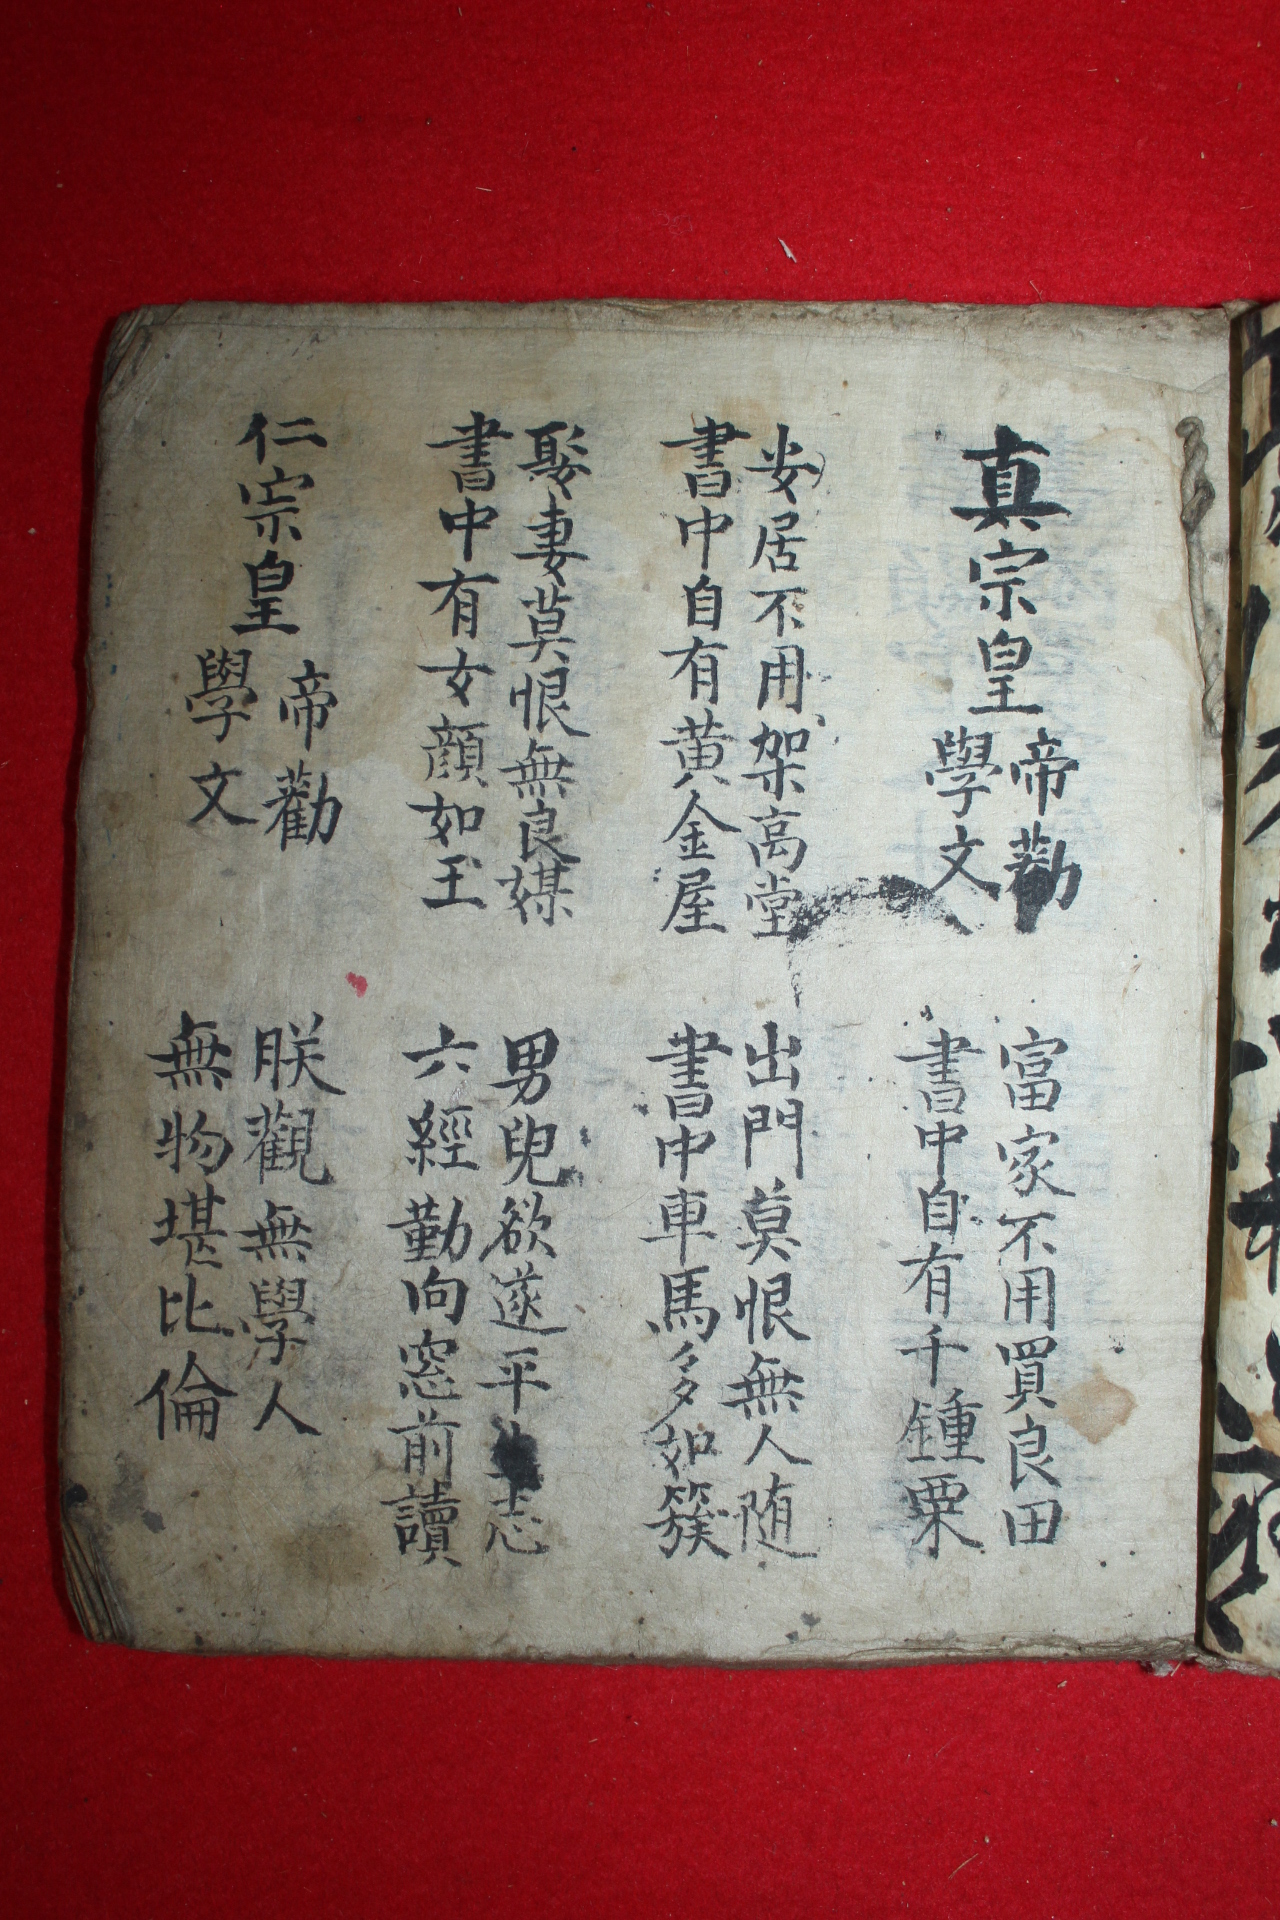 真宗皇帝勸
學文
富家不用買良田
書中自有千鍾粟
安居不用架高堂
書中自有黄金屋
出門莫恨無人随
書中車馬多如簇
娶妻莫恨無良媒
書中有女顔如玉
男兒欲遂平生志
六經勤向窓前讀
仁宗皇帝勸
學文
朕觀無學人
無物堪比倫